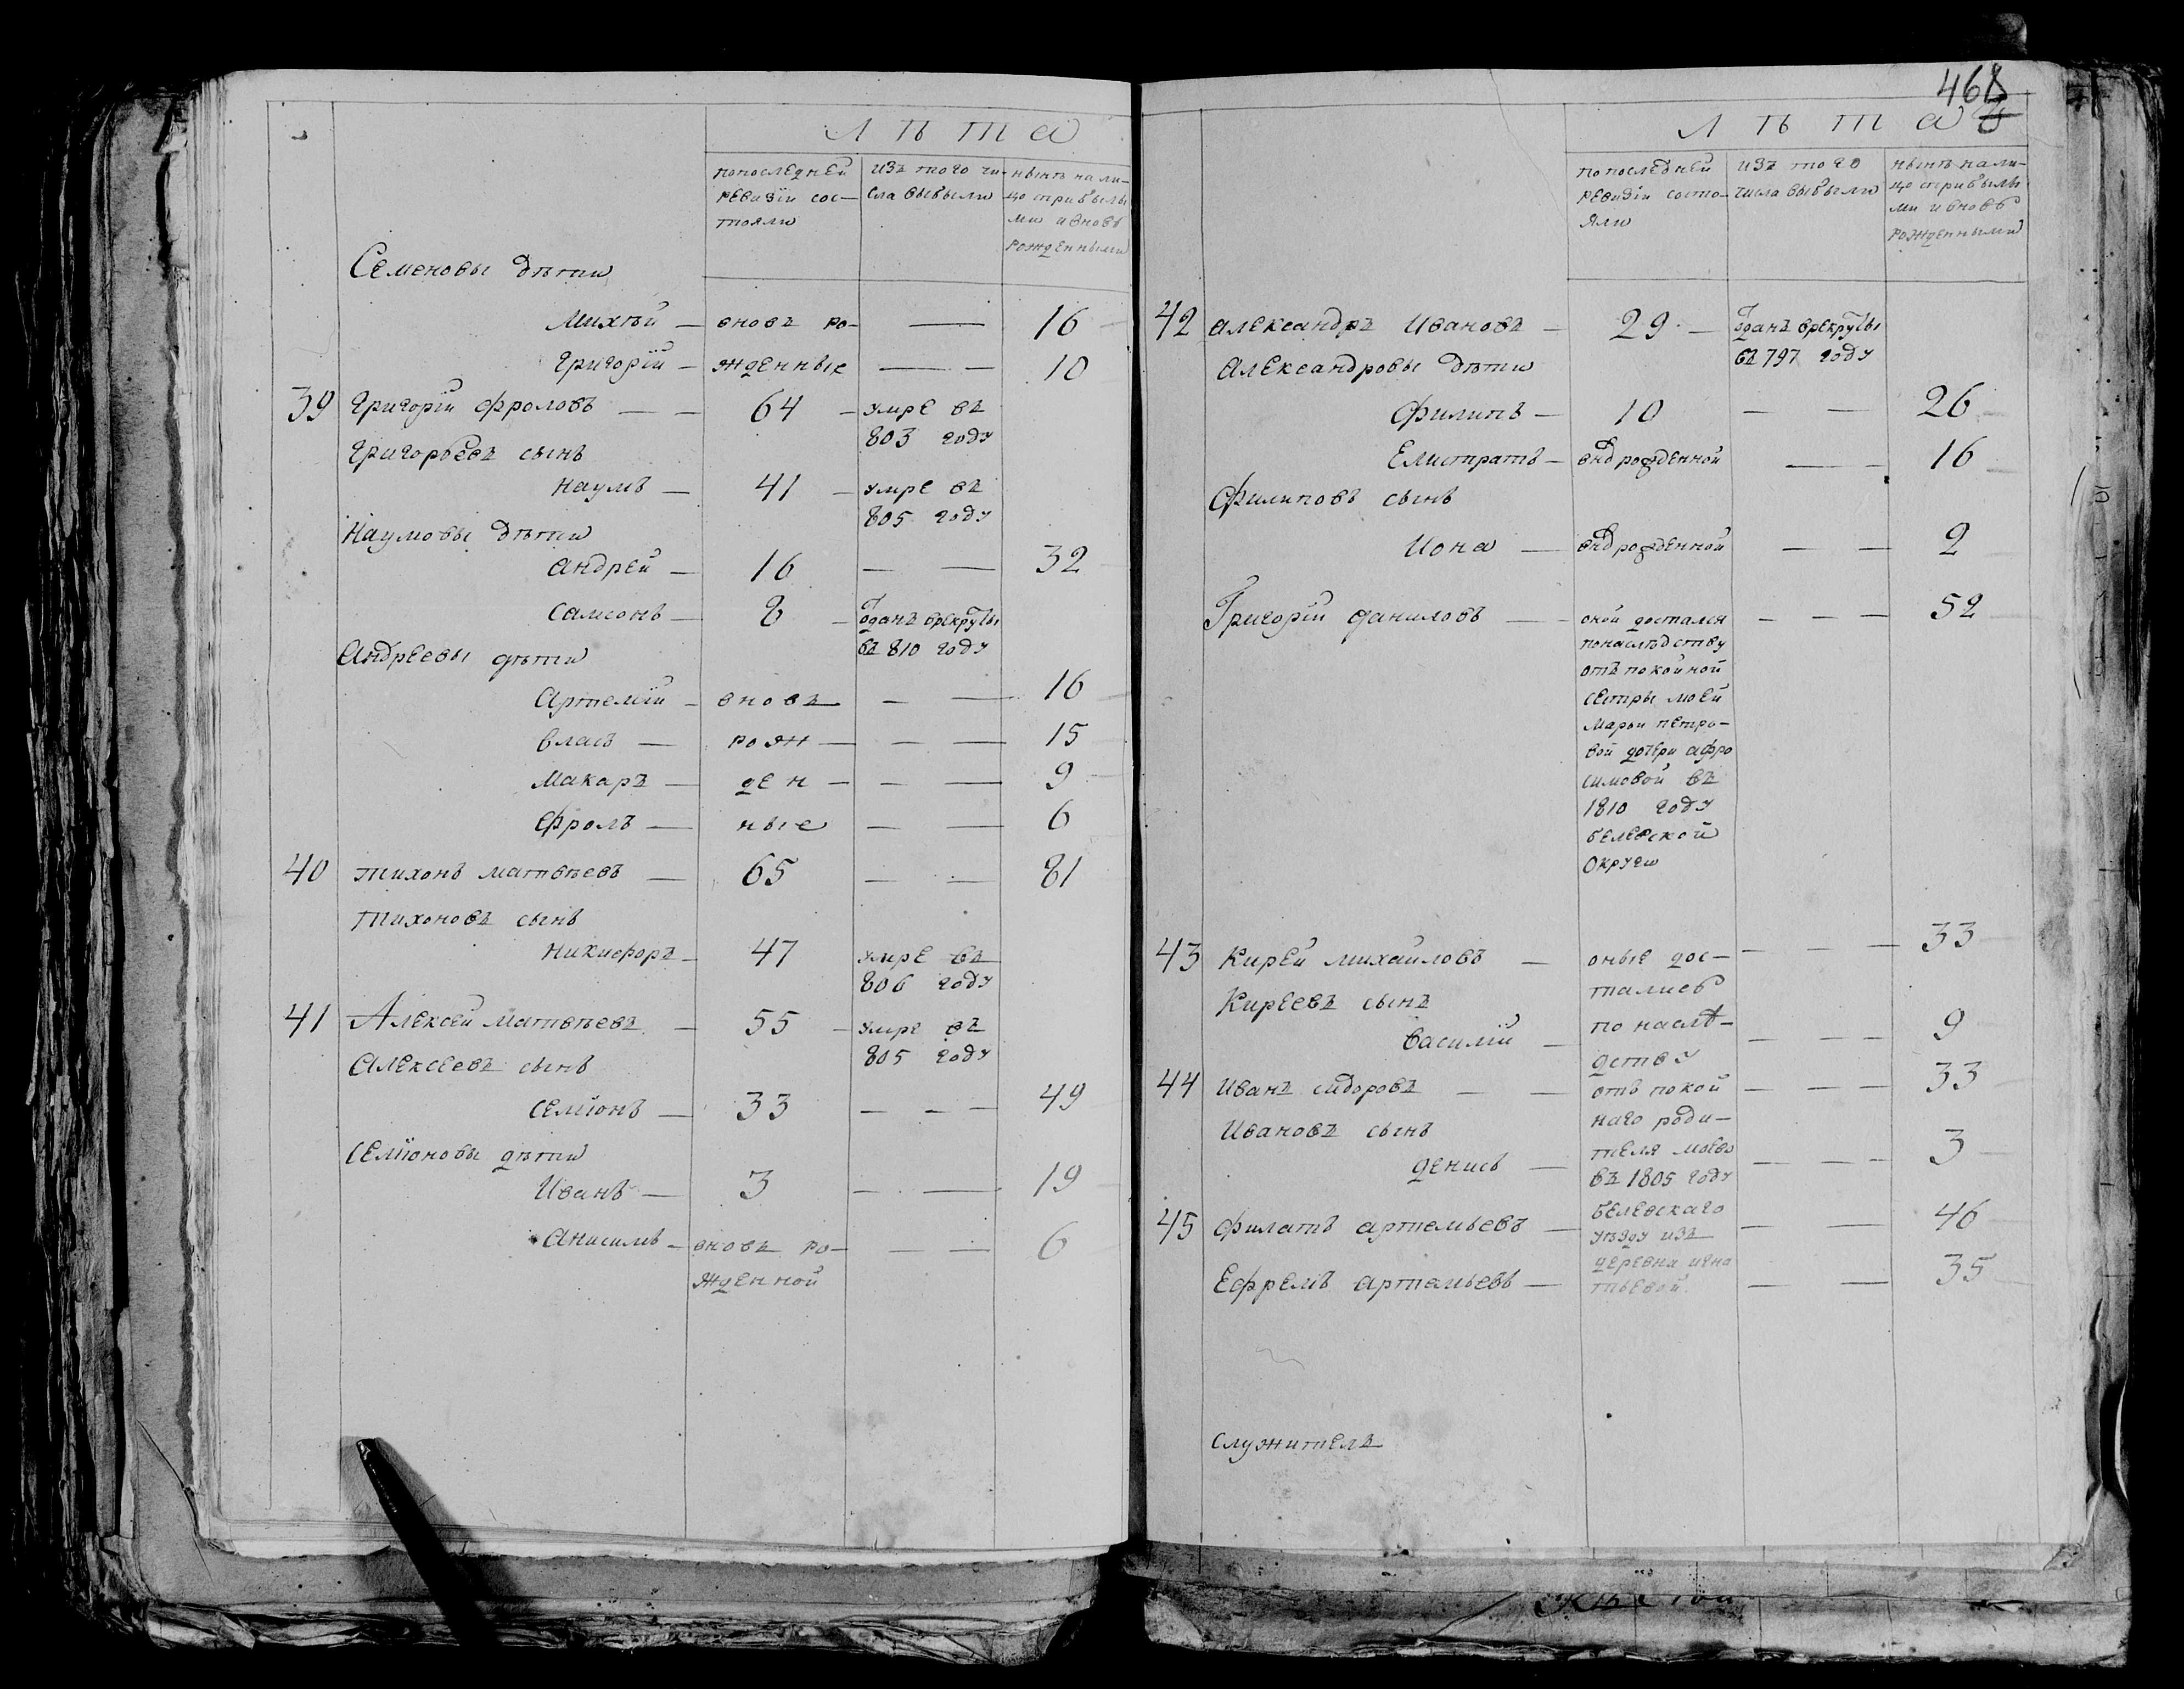 Л ѣ т а
попослѣдней ревизїи состояли
изъ того числа выбыли
нынѣ налицо сприбылыми ивновь рожденными
Семеновы дѣти
Михѣй — вновь ро- — 16
Григорїй — жденные — — 10
39 Григорїй Фроловъ — — 64 — умре въ
803 году
Григорьевъ сынъ
Наумъ — 41 — умре въ
805 году
Наумовы дѣти
Андрей — 16 — — 32
Самсонъ — 8 — Отданъ врекруты
въ 810 году
Андреевы дѣти
Артемїй — вновь — — 16
Власъ — рож — — — 15
Макаръ — ден — — — 9
Фролъ — ные — — 6
40 Тихонъ Матвѣевъ — 65 — — 81
Тихоновъ сынъ
Никифоръ — 47 умре въ
806 году
41 Алексей Матвѣевъ — 55 — умре въ
805 году
Алексеевъ сынъ
Семїонъ — 33 — — — 49
Семїоновы дѣти
Иванъ — 3 — — 19
Анисимъ — вновь ро- — — 6
жденной
468
Л ѣ т а
попослѣдней ревизїи состояли
изъ того числа выбыли
нынѣ налицо сприбылыми ивновь рожденными
42 Александръ Ивановъ — 29 — Отданъ врекруты
въ 797 году
Александровы дѣти
Филипъ — 10 — — 26
Елистратъ — внов рожденной — — 16
Филиповъ сынъ
Иона — внов рожденной — — 2
Григорїй Даниловъ — оной достался — — — 52
понаслѣдству
отъ покойной
сестры моей
Марьи Петро-
вой дочери Афро
симовой въ
1810 году
белевской
округи
43 Кирей Михайловъ — оные дос- — — — 33
Киреевъ сынъ
талис
Василїй — по наслѣ- — — — 9
дству
44 Иванъ Сидоровъ — — отъ покой — — — 33
Ивановъ сынъ
наго роди-
Денисъ — теля моего — — — 3
въ 1805 году
45 Филатъ Артемьевъ — белевскаго — — 46
уѣзду изъ
деревни
Ефремъ Артемьевъ — — — 35
служителъ